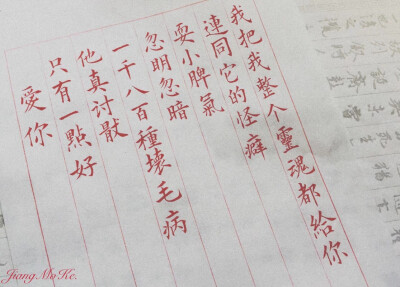 我把我整个靈魂都給你
連同它的怪癖
耍小脾氣
忽明忽暗
一千八百種壞毛病
他真討厭
只有一點好
愛你
JiangMoKe.